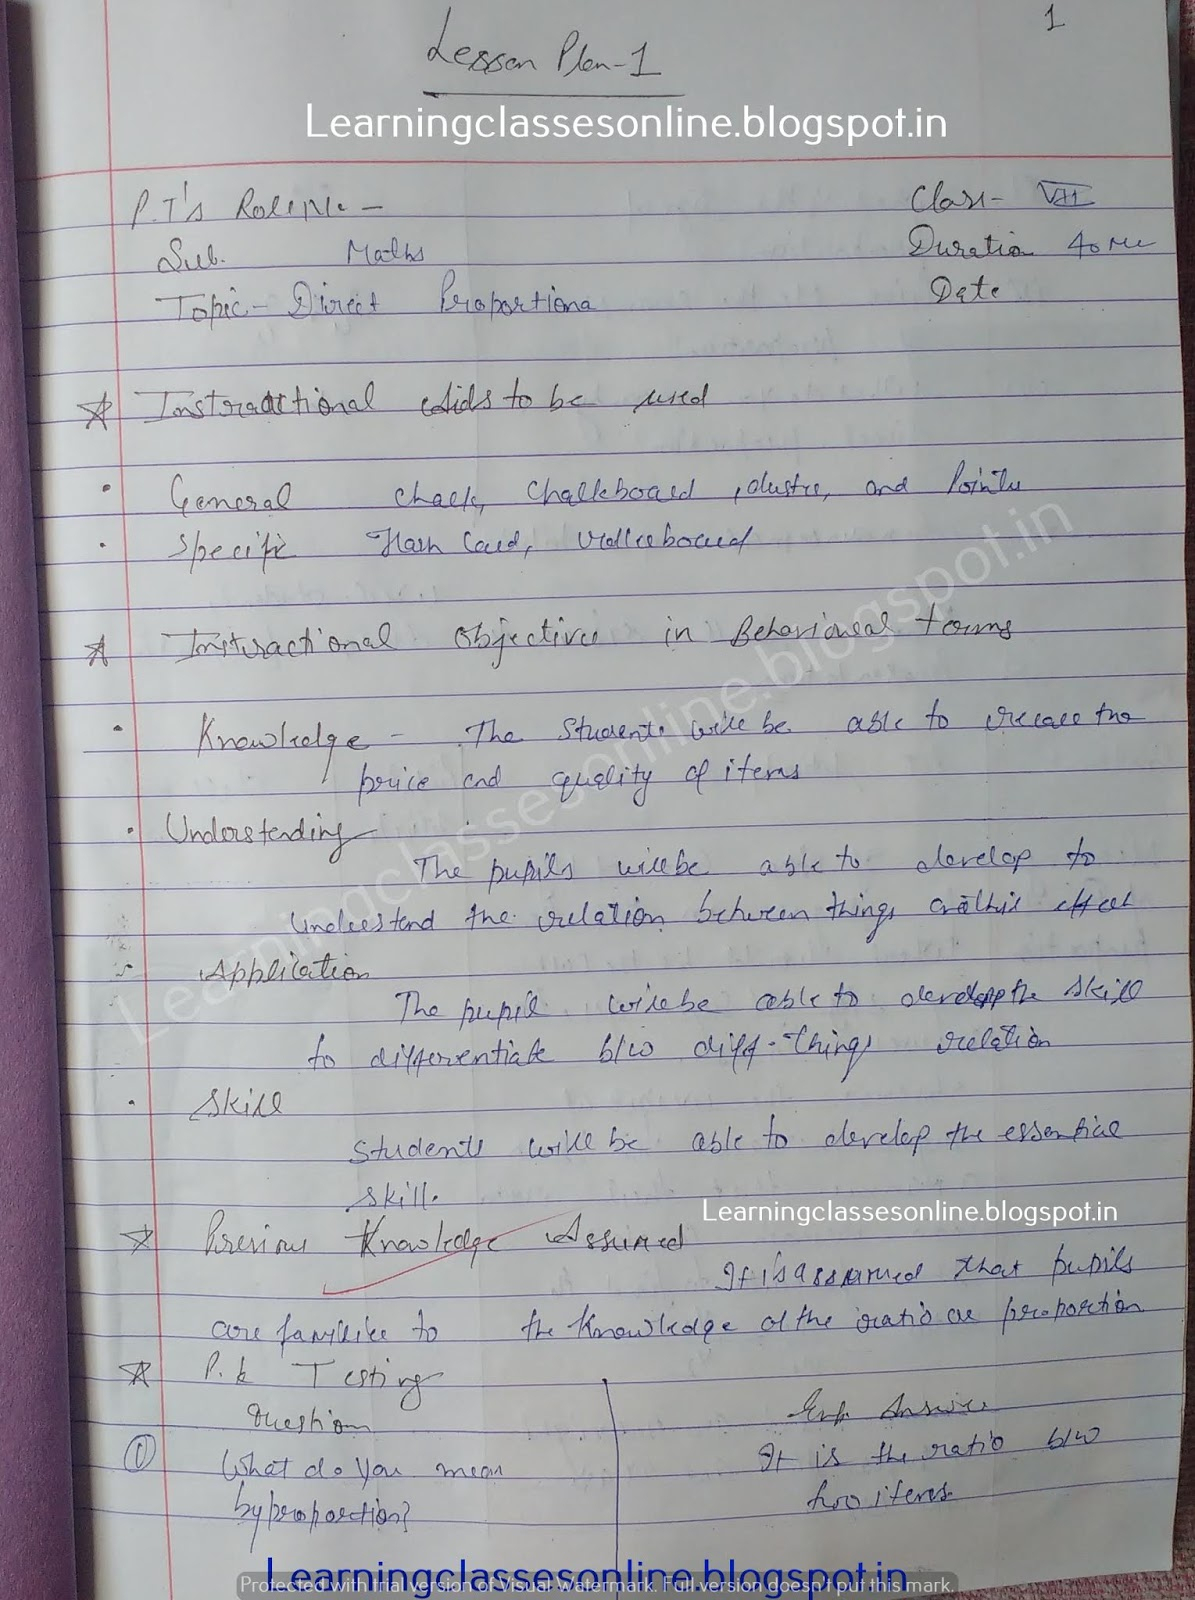 1
Lesson Plan-1
Learningclassesonline.blogspot.in
P.T's Roll No. - Class- VIII
Sub. Maths Duration 40
Topic- Direct Proportions Date
Instructional aids to be used
General chalk, chalkboard, duster, and Pointer
Specific Flash Card, rollerboard
Learningclassesonline.blogspot.in
Instructional Objectives in Behavioural terms
Knowledge - The Students will be able to recall the
price and quality of items
Understanding
The pupils will be able to develop to
understand the relation between things and this effect
Application
The pupil will be able to develop the skill
to differentiate b/w diff. things relation
Skill
Students will be able to develop the essential
skill.
Learningclassesonline.blogspot.in
Previous Knowledge Assumed
It is assumed that pupils
are familier to the knowledge of the ratio or proportion
P.k Testing
Question Exp. Answer
① What do you mean It is the ratio b/w
by proportion? two items
Learningclassesonline.blogspot.in
Protected with trial version of Visual Watermark. Full version doesn't put this mark.